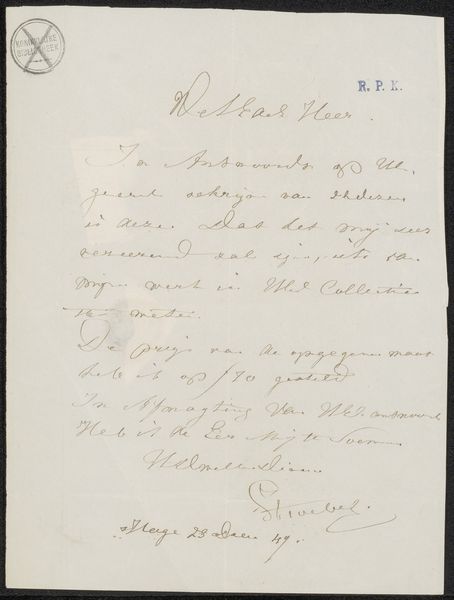 KONINKLIJKE
BIBLIOTHEEK
R. P. K.
WelEdele Heer.
In Antwoord op Ul.
geeerd schrijven van
is deze. Dat het mij zeer
vereerend zal zijn, iets van
mijn werk in Uwe Collectie
te weten.
De prijs van de opgegeven maat
heb ik op f 70 gesteld
In Afwagting Van UEd antwoord
Heb ik de Eer Mij te Noemen
UEdWelEd Dien
Stroebel.
sHage 23 Decr 49.